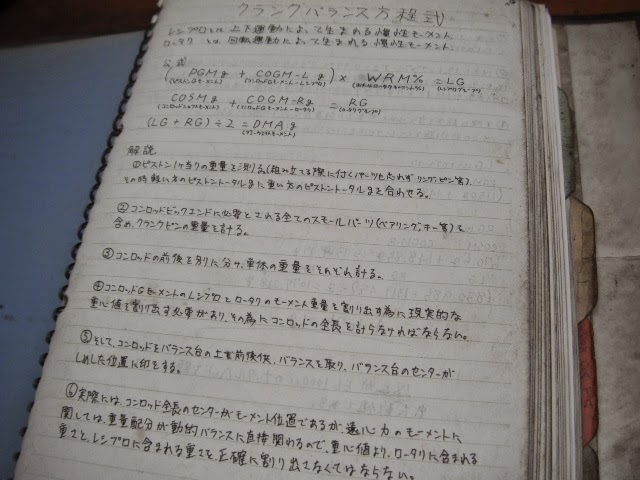 クランクバランス方程式
レシプロとは上下運動によって生まれる慣性モーメント
ロータリとは回転運動によって生まれる慣性モーメント
公式
(PGMg + COGM-Lg) × WRM% = LG
(ピストンGモーメント) (コンロッドGモーメント-レシプロ) (レシプログループ)
COSMg + COGM-Rg = RG
(コンロッドGモーメント-ロータリ) (ロータリグループ)
(LG + RG) ÷ 2 = DMAg
解説
①ピストン1ヶ当りの重量を測る(組み立てる際に付くパーツも忘れず リング,ピン等)、
その時軽い方のピストントータルgに重い方のピストントータルgを合わせる。
②コンロッドビックエンドに必要とされる全てのスモールパーツ(ベアリング,キー等)を
含め、クランクピンの重量を計る。
③コンロッドの前後を別に分け、単体の重量をそれぞれ計る。
④コンロッドGモーメントのレシプロとロータリのモーメント重量を割り出す為に現実的な
重心値を割り出す必要があり、その為にコンロッドの全長を計らなければならない。
⑤そして、コンロッドをバランス台の上で前後後、バランスを取り、バランス台のセンターが
しめした位置に印をする。
⑥実際には、コンロッド全長のセンターがモーメント位置であるが遠心力のモーメントに
関しては、重量配分が動的バランスに直接関わるので、重心値より、ロータリに含まれる
重さと、レシプロに含まれる重さを、正確に割り出さなくてはならない。